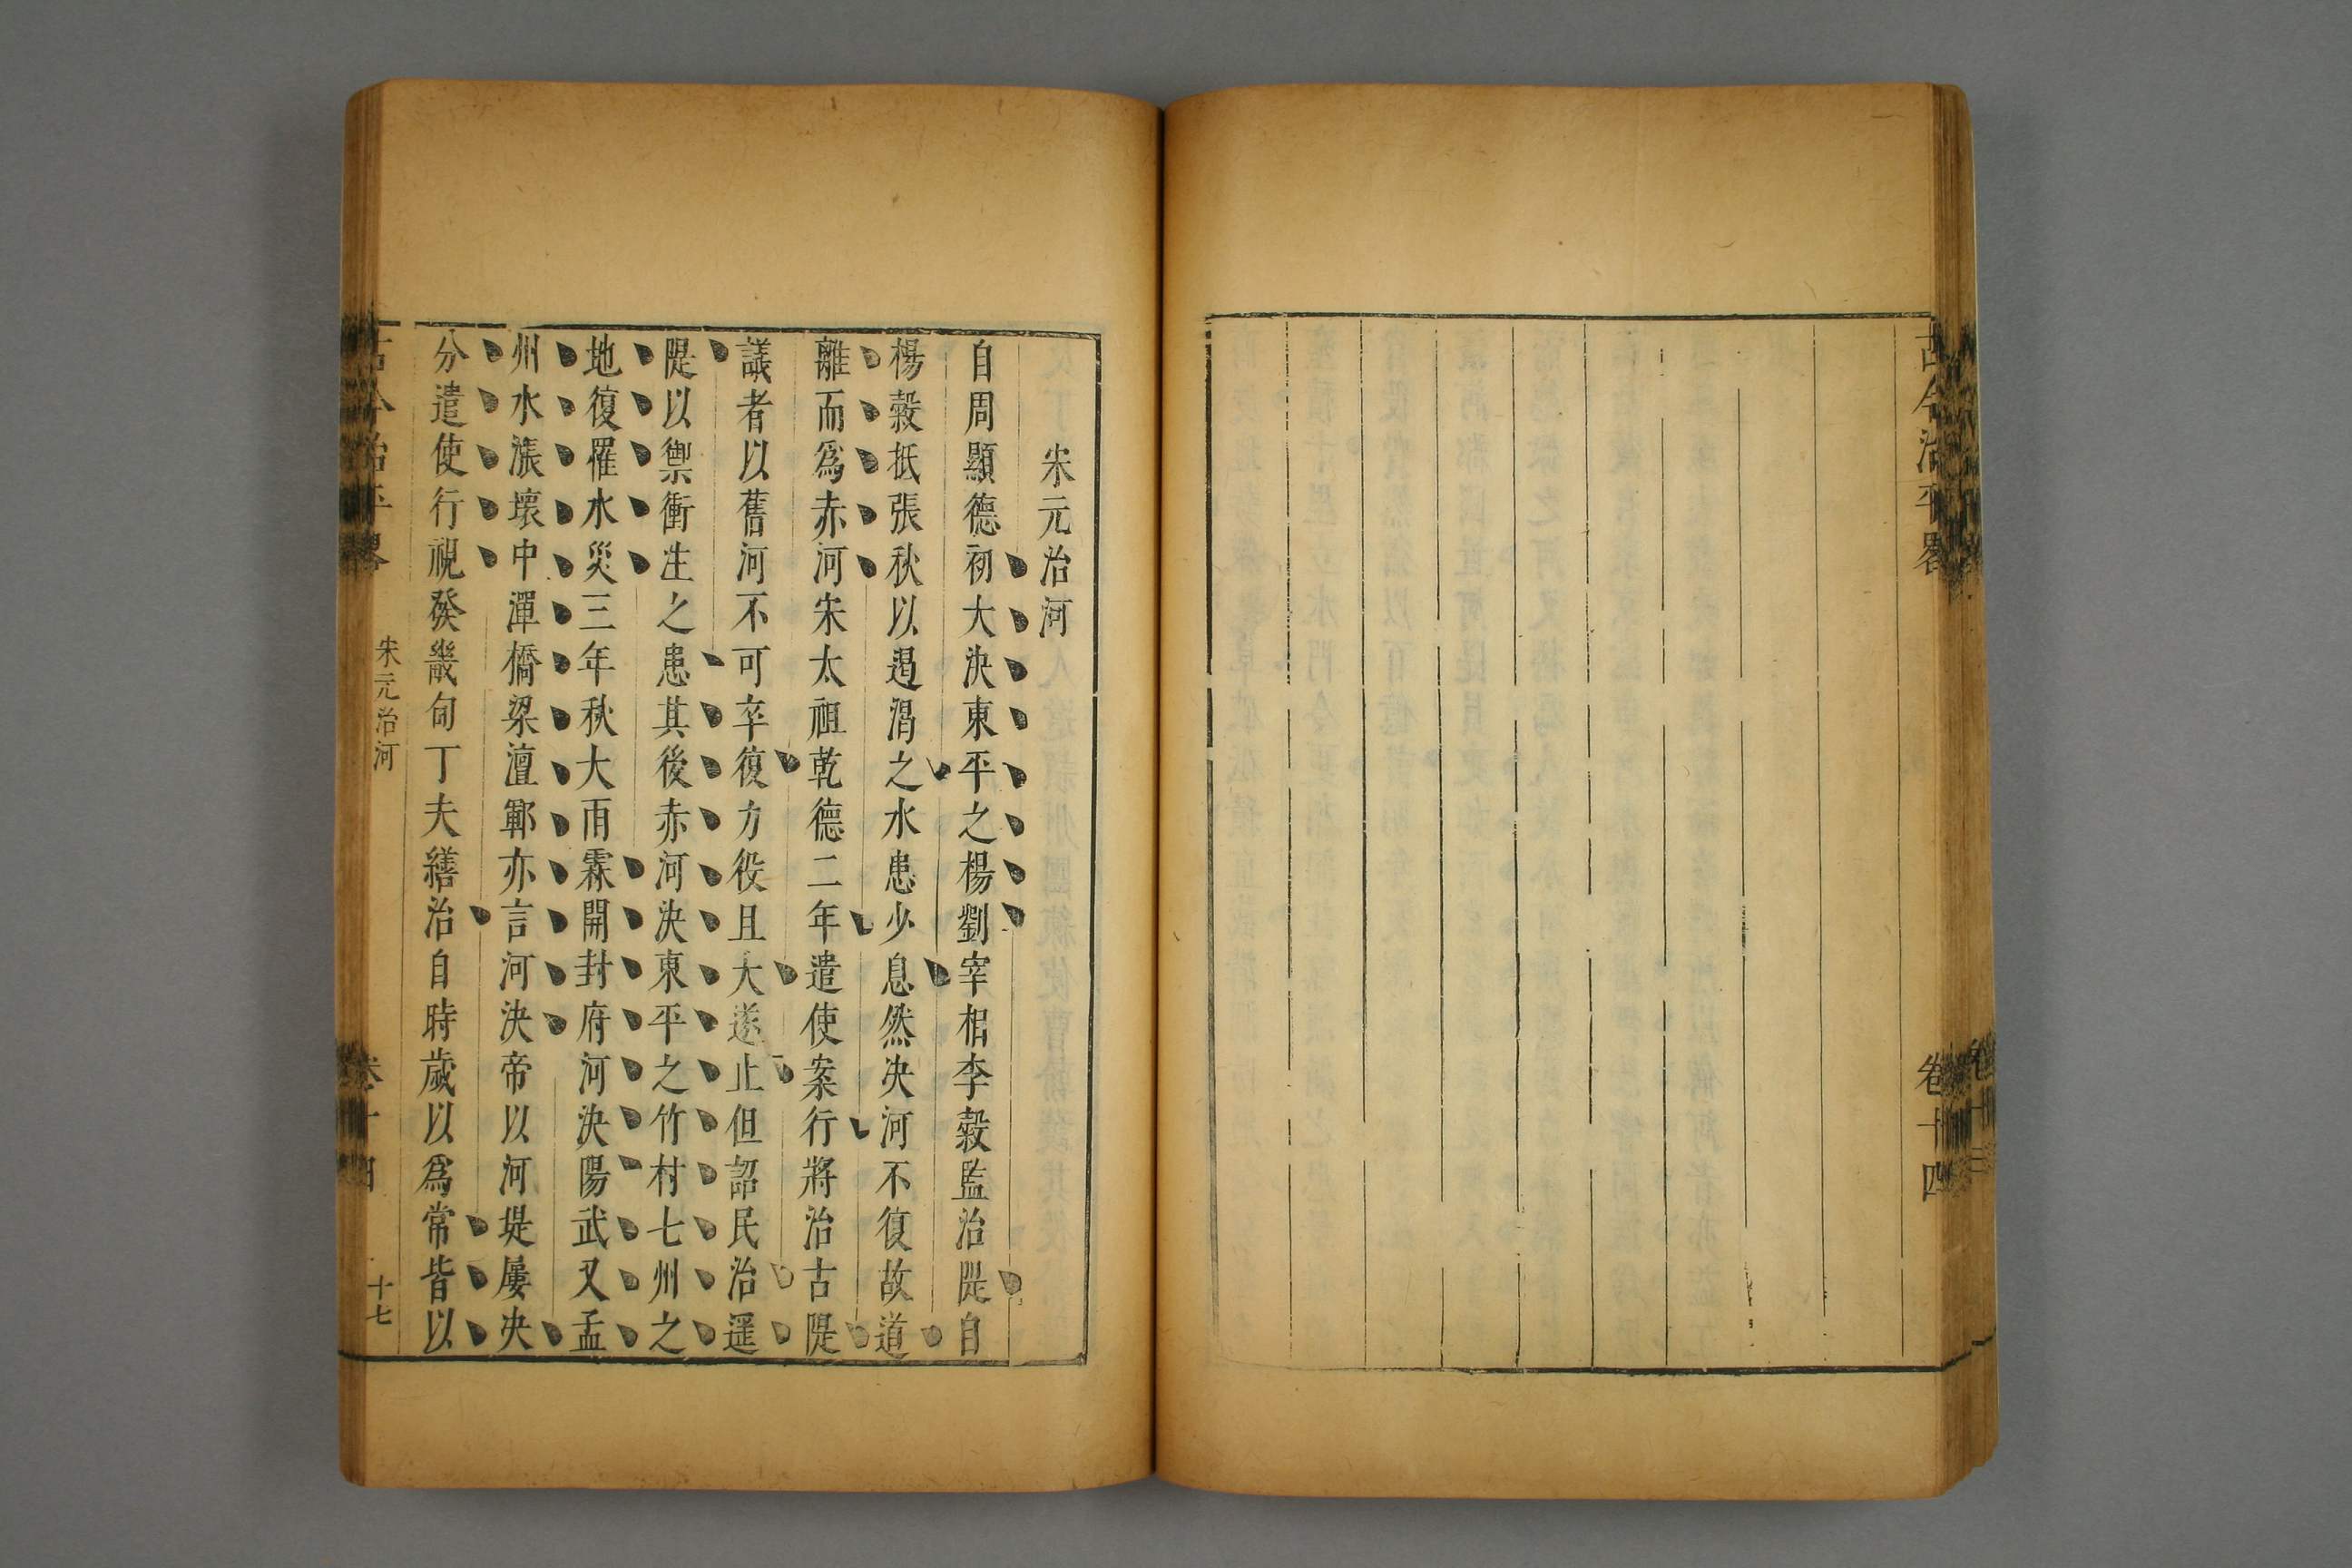 古今治平畧
卷十四
宋元治河
自周顯德初大決東平之楊劉宰相李榖監治隄自
楊榖抵張秋以遏滑之水患少息然決河不復故道
離而爲赤河宋太祖乾德二年遣使案行將治古隄
議者以舊河不可卒復力役且大遂止但詔民治遥
隄以禦衝注之患其後赤河決東平之竹村七州之
地復罹水災三年秋大雨霖開封府河決陽武又孟
州水漲壞中潬橋梁澶鄆亦言河決帝以河堤屢決
分遣使行視發畿甸丁夫繕治自時歲以爲常皆以
古今治平畧
宋元治河
卷十四
十七